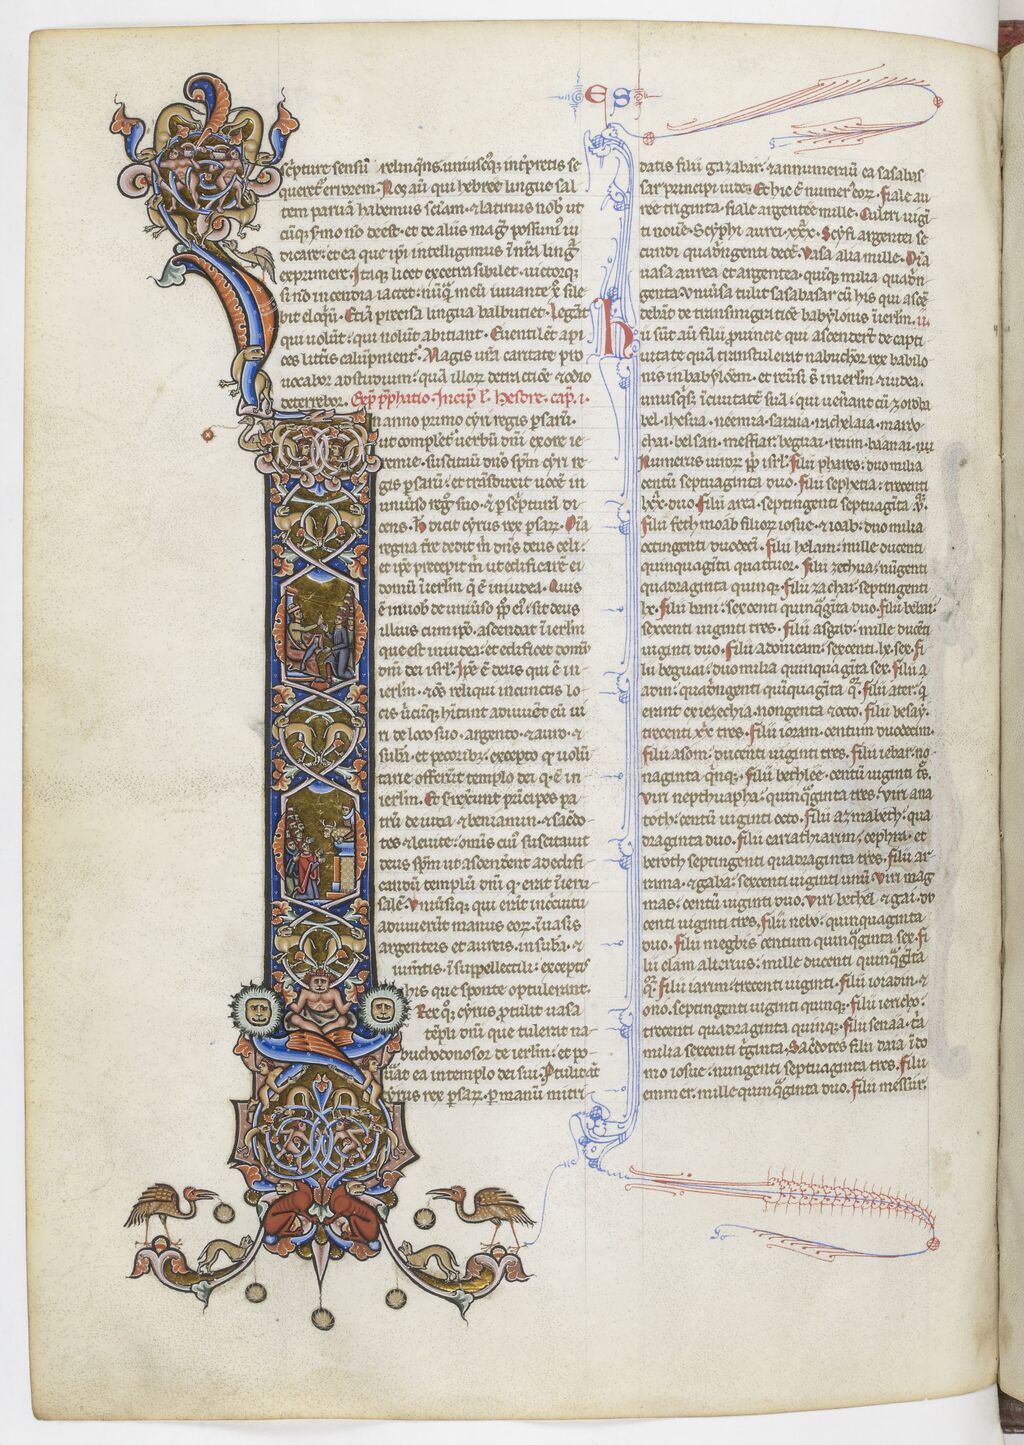 ES
sc̄pture sensū relinq̄ns uniuscq; inp̄retis se
queret̄ errorem. Nos aūt qui hebree lingue sal
tem paruā habemus sc̄iam. ⁊ latinus nob̄ ut
cūq; s̄mo nō deest. et de aliis maḡ possum iu
dicare. et ea que ip̄i intelligimus ī nr̄a ling̃
exprimere. Itaq; licet excetra sibilet. uictorq;
sinō incendia iactet. nūq̃ meū iuuante x̄ sile
bit eloq̄ū. Etiā precisa lingua balbutiet. Legāt
qui uolūt. qui nolūt abitiant. Euentilēt api
ces litt̄is calūpnient̄. Magis ur̄a caritate pro
uocabor ad studium. quā illor̄ detractiōe ⁊ odio
deterrebor. Exp̄ p̄phatio. Incip̄ l̄. hesdre. cap̄. i.
In anno primo cyri regis p̄sarū.
ut complet̄ uerbū dn̄i ex ore ie
remie. suscitauit dn̄s sp̄m cyri re
gis p̄sarū. et transduxit uocē in
uniuso reg̃ suo. ⁊ p̄ sc̄pturā di
cens. h̄ dicit cyrus rex p̄sar̄. Oīa
regna tr̄e dedit m̄ dn̄s deus celi.
et ip̄e precepit m̄ ut edificarē ei
domū ī ierlm̄ q̄ ē in iudea. Quis
ē in uob̄ de uniuso pp̄ ei. sit deus
illius cum ip̄o. ascendat ī ierlm̄
que est in iudea. et edificet domū
dn̄i dei isrl̄. Ip̄e ē deus qui ē in
ierlm̄. ⁊ oēs reliqui in cunctis lo
cis ūcūq; hītant adiuuēt eū ui
ri de loco suo. argento. ⁊ auro. ⁊
sub̄a. et pecorib;. excepto q̄ uolū
tarie offerūt templo dei q̄ ē in
ierlm̄. Et surrexerunt prīcipes pa
trū de iuda. ⁊ beniamin. ⁊ sac̄do
tes ⁊ leuite. omīs cui suscitauit
deus sp̄m ut ascendent ad edifi
candū templū dn̄i q̄ erat ī ieru
salē. Uniusiq; qui erāt in circuitu
adiuuerūt manus eor̄. ī uasis
argenteis et aureis. in sub̄a. ⁊
iumtis. ī supellectili. exceptis
his que sponte optulerunt.
Rex q̄; cyrus p̄tulit uasa
tēpli dn̄i que tulerat na
buchodonosor de ierlm̄. et po
suāt ea in templo dei sui. Ptulit aūt
cyrus rex p̄sar̄. p̄ manū mitri
datis filii gazabar. ⁊ annumerauit ea sasabas
sar principi iude. Et hic ē numer̄ eor̄. Fiale au
ree triginta. fiale argentee mille. Cultri uigī
ti noue. Scyphi aurei. xxx. Scyfi argentei se
cundi quadringenti decē. Uasa alia mille. Oīa
uasa aurea et argentea. quīq; milia quadrī
genta. Uniuersa tulit sasabasar cū his qui ascē
debāt de transmigratiōe babylonis ī ierlm̄. ii.
hi sūt aūt filii p̄uincie qui ascenderūt de capti
uitate quā transtulerat nabuchor̄ rex babilo
nis in babylōem. et reūsi s̄ in ierlm̄ ⁊ iudea.
unusqs; ī ciuitatē suā. qui uenerāt cū zoroba
bel. ihesua. neemia. saraia. rachelaia. mardo
chai. belsan. mesfar. beguai. reum. baanai. nū
Numerus uiror̄ pp̄li isrl̄. Filii phares. duo milia
centū septuaginta duo. Filii sephetia. trecenti
lxx̄. duo. Filii area. septingenti septuagīta .v.
Filii feth moab filior̄ iosue. ⁊ ioab. duo milia
octingenti duodeci. Filii helam. mille ducenti
quinquagīta quattuor. Filii zethua. nūgenti
quadraginta quinq;. Filii zachai. septingenti
lx. Filii bani. sexcenti quinq̃gīta duo. Filii bebai.
sexcenti uiginti tres. Filii asgad. mille ducēti
uiginti duo. Filii adonicam. sexcenti. lx. sex. Fi
lii beguai. duo milia quinquagīta sex. Filii a
adin. quadrīgenti quīquagīta q̄r. Filii ater. q̄
erant ex iezechia. nongenta ⁊ octo. Filii besay.
trecenti xx̄. tres. Filii ioram. centum duodecim.
Filii asom. ducenti uiginti tres. Filii iebar. no
naginta q̄nq;. Filii bethlee. centū uiginti tr̄s.
Uiri nepthuapha. quinq̃ginta tres. Uiri ana
toth. centū uiginti octo. Filii azmabeth. qua
draginta duo. Filii cariathiarim. cephra. et
beroth septingenti quadraginta tres. Filii ar
rama. ⁊ gaba. sexcenti uiginti unū. Uiri mag
mas. centū uiginti duo. Uiri bethel ⁊ gai. du
centi uiginti tres. Filii nebo. quinquaginta
duo. Filii megbis centum quinq̃ginta sex. Fi
lii elam alterius. mille ducenti quinq̃gīta
q̄r. Filii iarim. trecenti uiginti. Filii ioradin. ⁊
ono. septingenti uiginti quinq;. Filii iericho.
trecenti quadraginta quinq;. Filii senaa. t̄a
milia sexcenti tginta. Sac̄dotes filii daia ī do
mo iosue. nungenti septuaginta tres. Filii
emmer. mille quinq̃ginta duo. Filii messur.